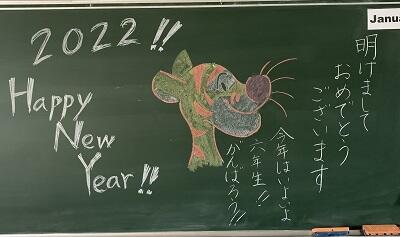 2022!!
Happy
New
Year!!
Janua
明けまして
おめでとう
ございます
今年はいよいよ
六年生!!
がんばろう!!